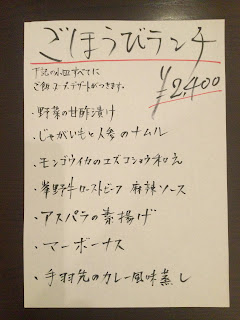 ごほうびランチ
下記の小皿すべてに
ご飯・スープ・デザートがつきます。
¥2,400
・野菜の甘酢漬け
・じゃがいもと人参のナムル
・モンゴウイカのユズコショウ和え
・峯野牛ローストビーフ 麻辣ソース
・アスパラの素揚げ
・マーボーナス
・手羽先のカレー風味蒸し